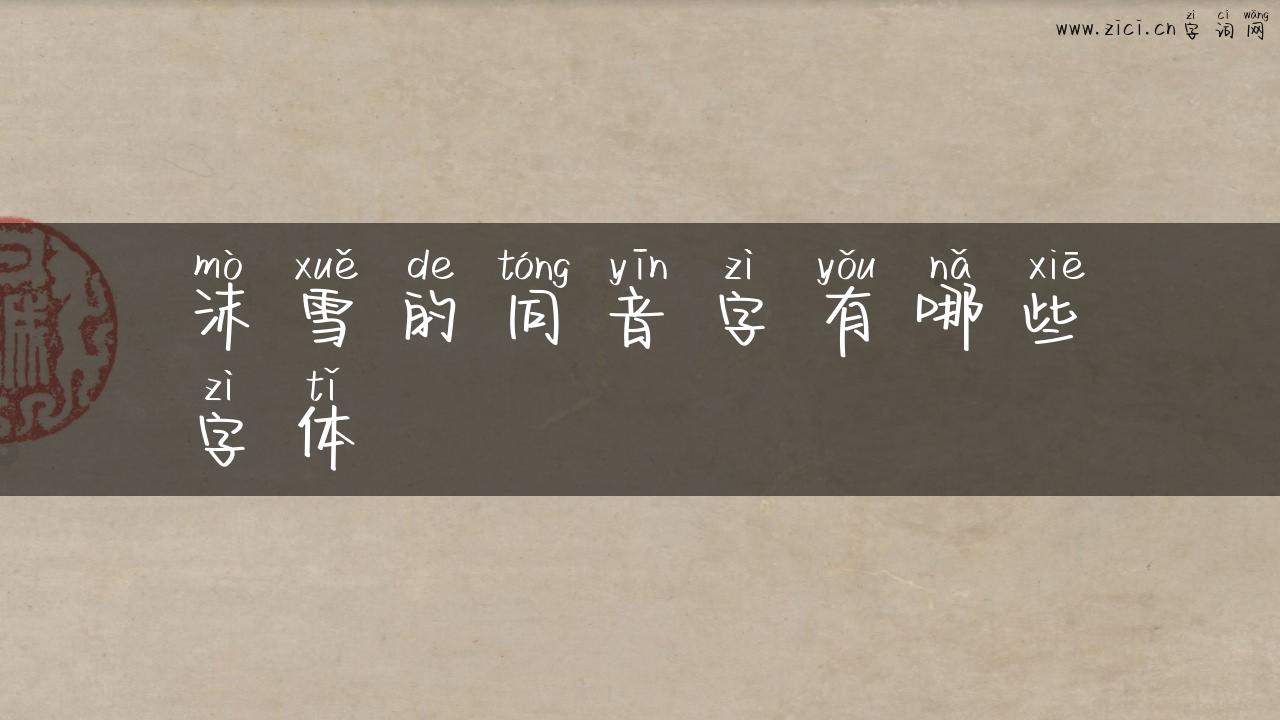 zì cí wǎng
www.zici.cn 字词网
mò xuě de tóng yīn zì yǒu nǎ xiē
沫雪的同音字有哪些
zì tǐ
字体